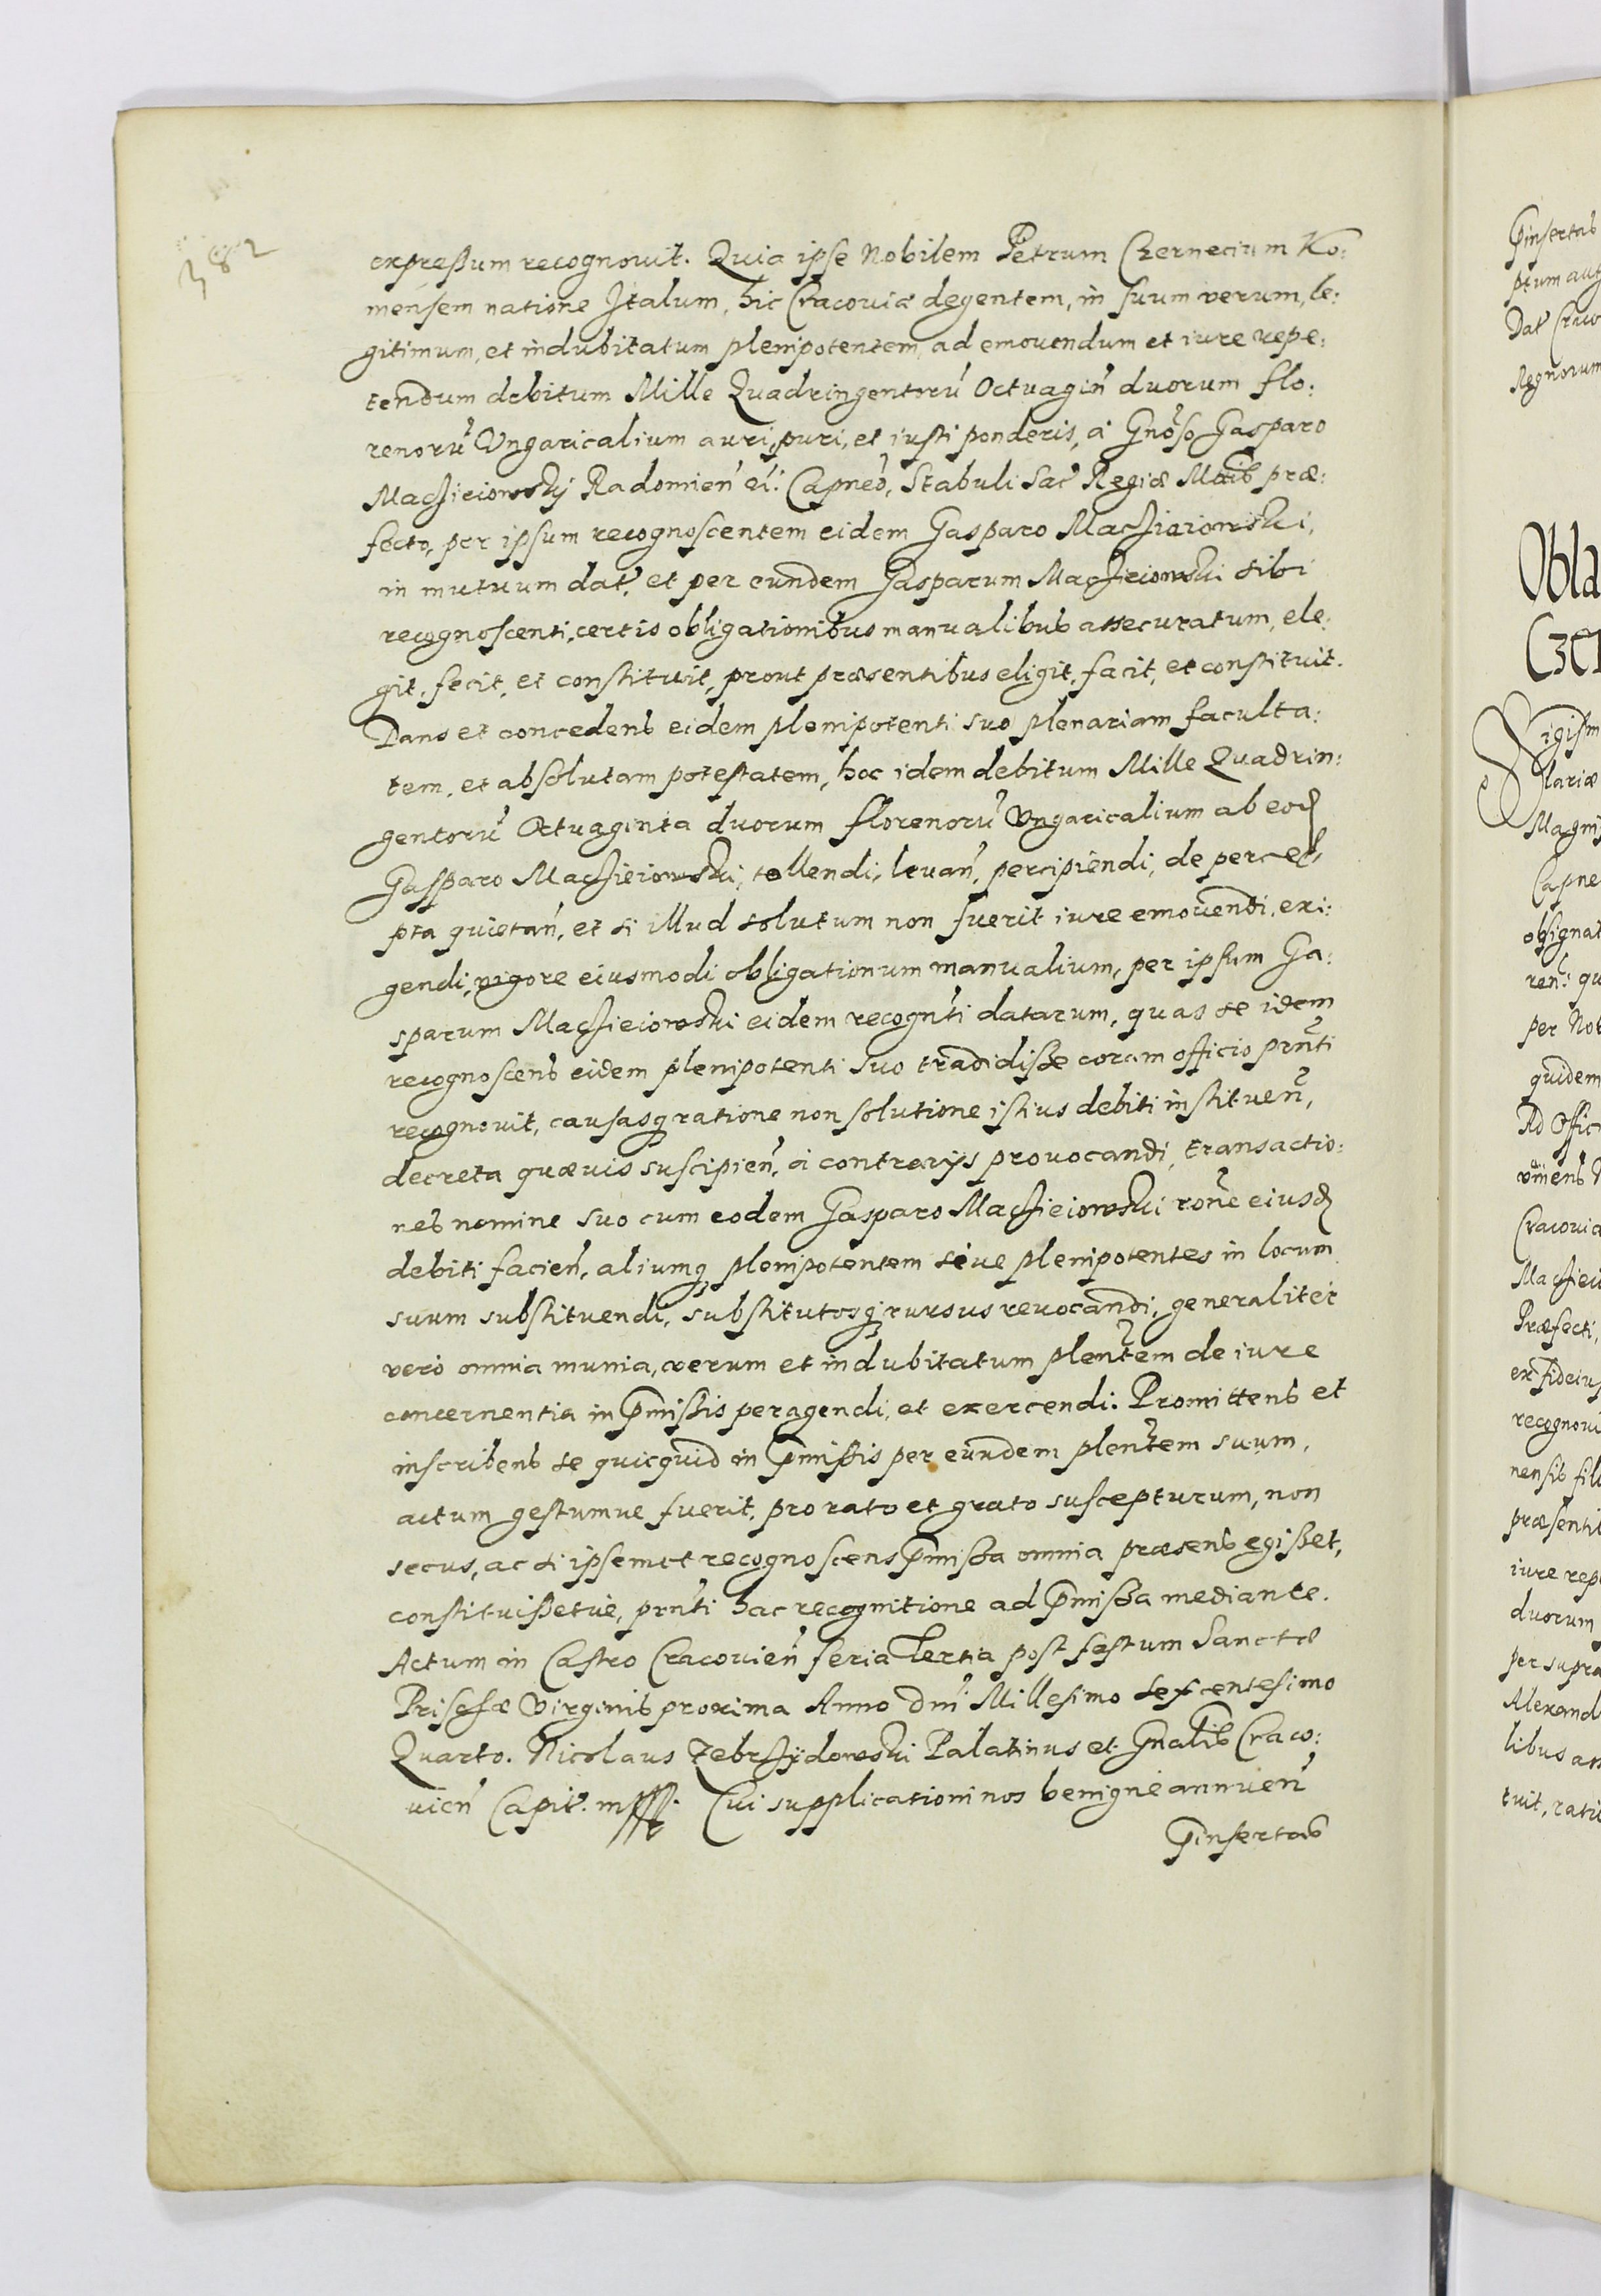 382
expreßum recognouit. Quia ipse Nobilem Petrum Czernecium Ko:
mensem natione Italum, hic Cracouiæ degentem, in suum verum, le:
gitimum, et indubitatum plenipotentem, ad emouendum et iure repe:
tendum debitum Mille Quadringentorũ Octuagiñ duorum flo:
renorũ Vngaricalium auri puri, et iusti ponderis, à Gnõso Gasparo
Macẏieiowskÿ Radomieñ ẽt: Capneõ, Stabuli Sac̃ Regiæ Mttis præ:
fecto, per ipsum recognoscentem eidem Gasparo Macẏieiowski,
in mutuum dat̃, et per eundem Gasparum Macẏieiowski sibi
recognoscenti, certis obligationibus manualibus assecuratum, ele:
git, fecit, et constituit, prout præsentibus eligit, facit, et constituit.
Dans et concedens eidem plenipotenti suo plenariam faculta:
tem, et absolutam potestatem, hoc idem debitum Mille Quadrin:
gentorũ Octuaginta duorum florenorũ Vngaricalium ab eod
Gasparo Macẏieiowski, tollendi, leuañ, percipiendi, de perce
pta quietañ, et si illud solutum non fuerit iure emouendi, exi:
gendi, vigore eiusmodi obligationum manualium, per ipsum Ga:
sparum Macẏieiowski eidem recogñti datarum, quas se idem
recognoscens eidem plenipotenti suo tradidisse coram officio prñti
recognouit, causasq̨ ratione non solutione istius debiti institueñ,
decreta quæuis suscipieñ, à contrarijs prouocandi, transactio:
nes nomine suo cum eodem Gasparo Macẏieiowski rõne eiusd
debiti facieñ, aliumq̨ plenipotentem siue plenipotentes in locum
suum substituendi, substitutosq̨ rursus reuocandi, generaliter
verò omnia munia, verum et indubitatum pleñtem de iure
concernentia in p̃mißis peragendi, et exercendi. Promittens et
inscribens se quicquid in p̃mißis per eundem pleñtem suum,
actum gestumue fuerit, pro rato et grato suscepturum, non
secus, ac si ipsemet recognoscens p̃mißa omnia præsens egißet,
constituißetue, prñti hac recognitione ad p̃mißa mediante.
Actum in Castro Cracouieñ feria Tertia post festum Sanctæ
Priscæ Virginis proxima Anno Dñi Millesimo sexcentesimo
Quarto. Nicolaus Zebrẏÿdowski Palatinus et Gñalis Craco:
uieñ Capit̃. mpp. Cui supplicationi nos benignè annueñ
p̃insertas